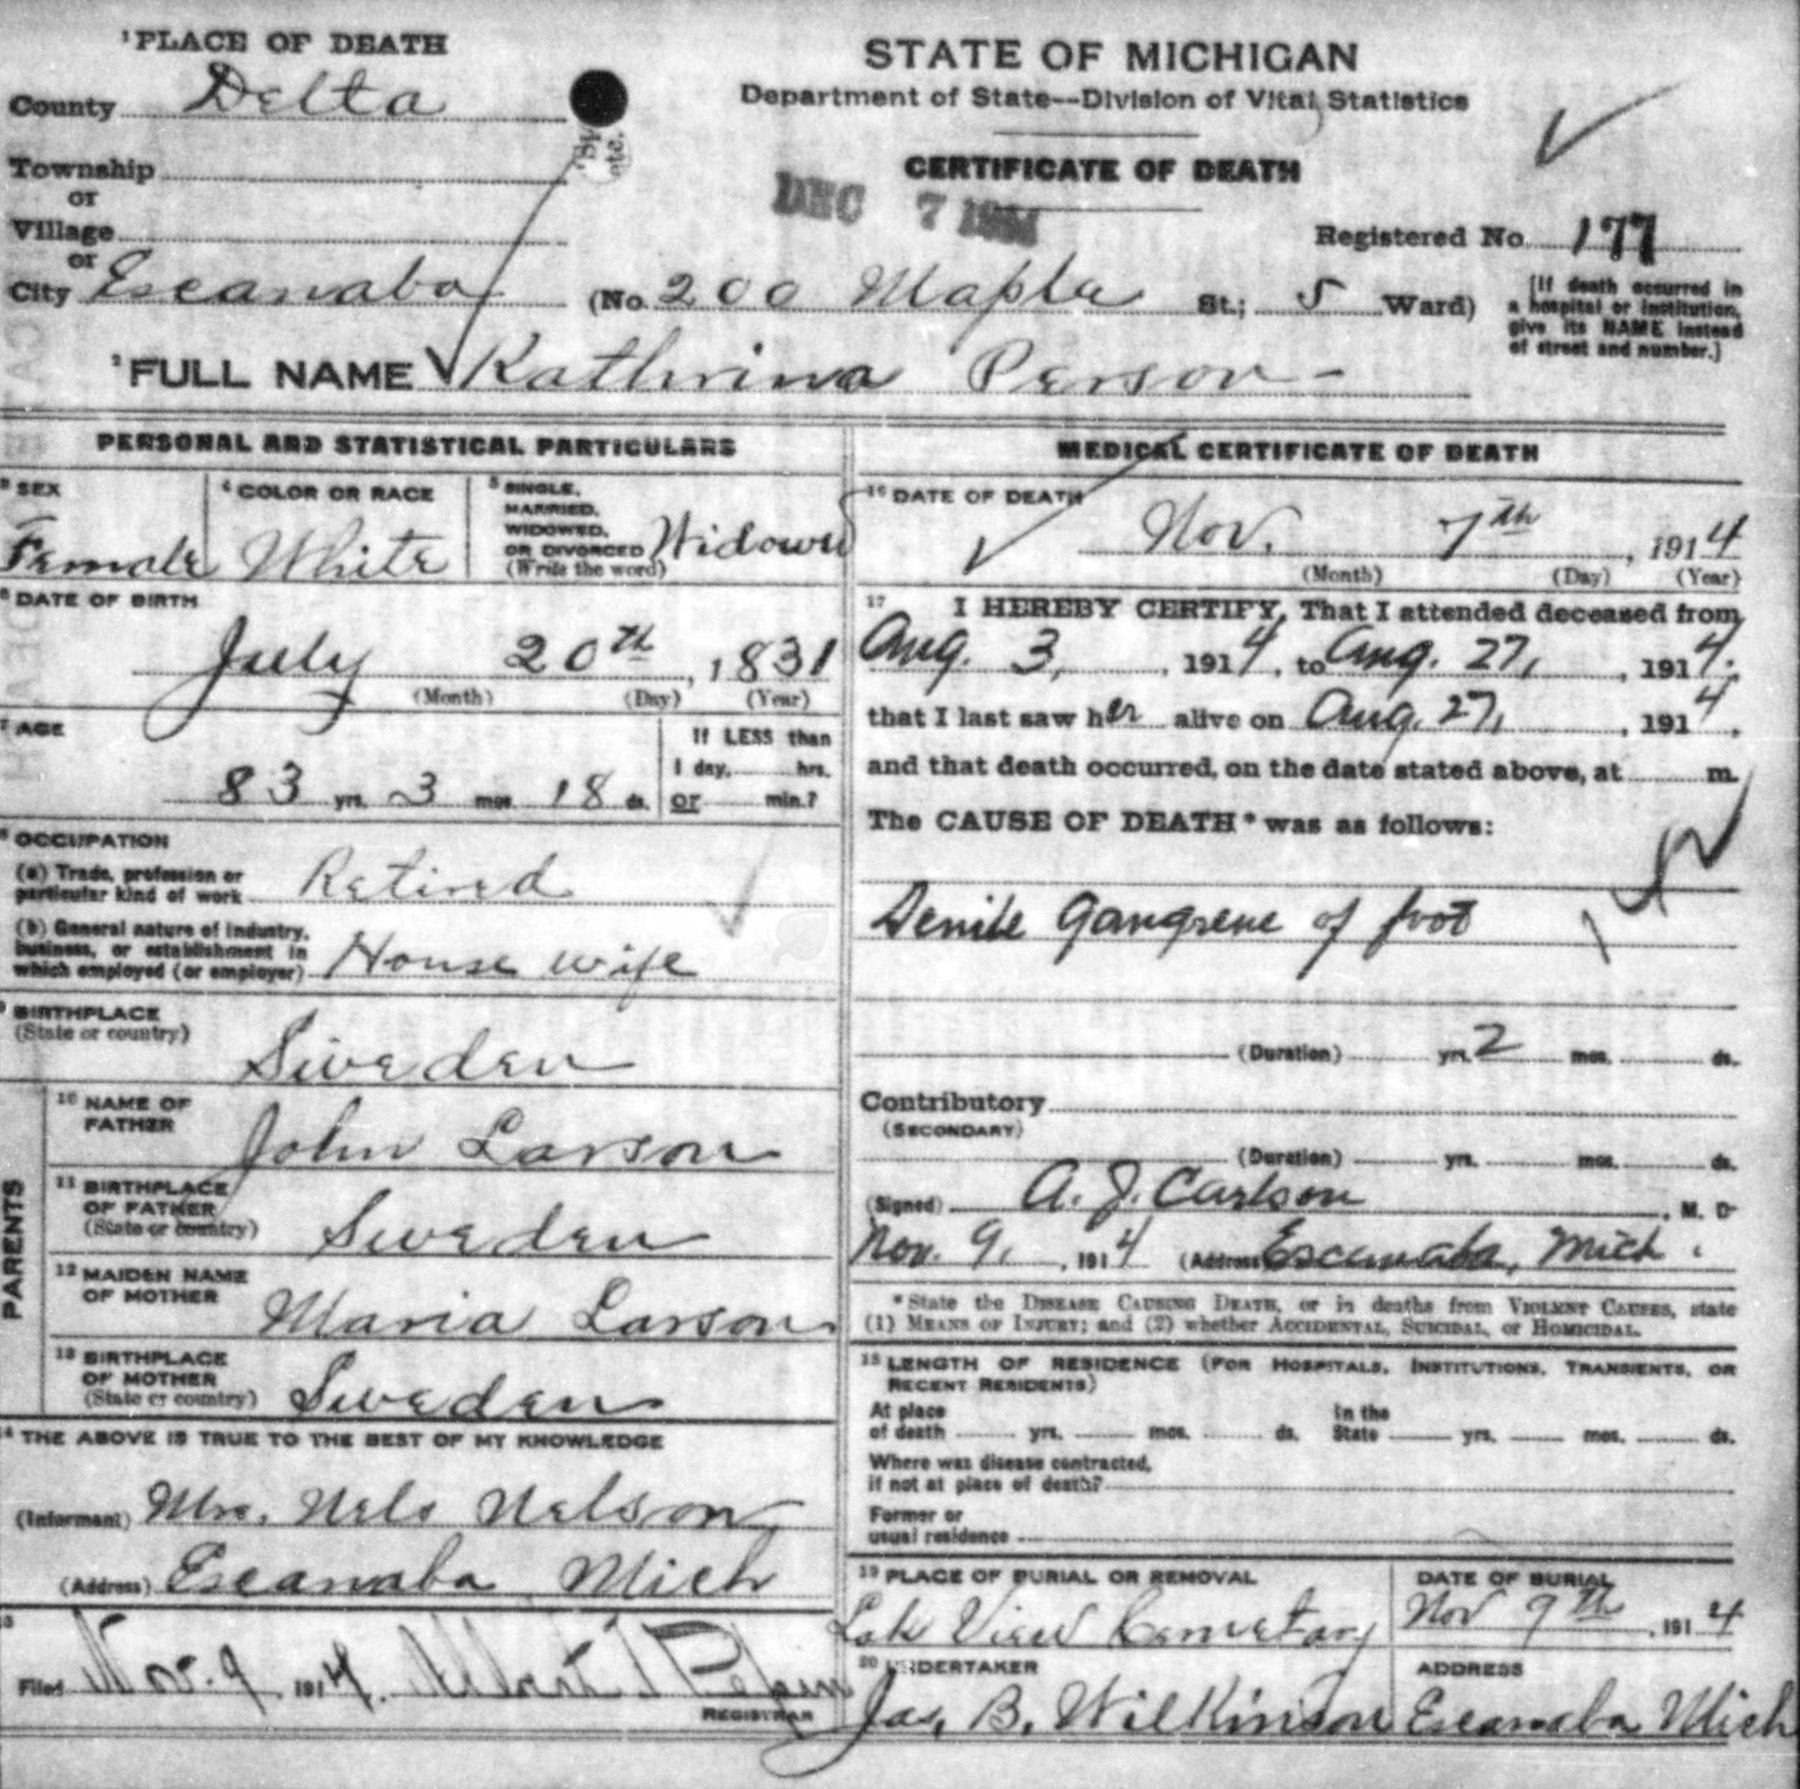 ¹PLACE OF DEATH
County Delta
Township
or
Village
or
City Escanaba
STATE OF MICHIGAN
Department of State—Division of Vital Statistics
CERTIFICATE OF DEATH
DEC 7 1914
Registered No. 177
(No. 200 Maple St.; 5 Ward)
[If death occurred in
a hospital or institution,
give its NAME instead
of street and number.]
²FULL NAME Kathrina Person
PERSONAL AND STATISTICAL PARTICULARS
³ SEX
Female
⁴ COLOR OR RACE
White
⁵ SINGLE,
MARRIED,
WIDOWED,
OR DIVORCED
(Write the word)
Widowed
⁶ DATE OF BIRTH
July 20th, 1831
(Month) (Day) (Year)
⁷ AGE
83 yrs. 3 mos. 18 ds.
If LESS than
1 day, hrs.
or min.?
⁸ OCCUPATION
(a) Trade, profession or
particular kind of work Retired
(b) General nature of industry,
business, or establishment in
which employed (or employer) House wife
⁹ BIRTHPLACE
(State or country)
Sweden
PARENTS
¹⁰ NAME OF
FATHER
John Larson
¹¹ BIRTHPLACE
OF FATHER
(State or country)
Sweden
¹² MAIDEN NAME
OF MOTHER
Maria Larson
¹³ BIRTHPLACE
OF MOTHER
(State or country)
Sweden
¹⁴ THE ABOVE IS TRUE TO THE BEST OF MY KNOWLEDGE
(Informant) Mrs. Nels Nelson
(Address) Escanaba Mich
15
Filed Nov. 9 1914.
REGISTRAR
MEDICAL CERTIFICATE OF DEATH
¹⁶ DATE OF DEATH
Nov. 7th, 1914
(Month) (Day) (Year)
17 I HEREBY CERTIFY, That I attended deceased from
Aug. 3, 1914, to Aug. 27, 1914.
that I last saw her alive on Aug. 27, 1914.
and that death occurred, on the date stated above, at m.
The CAUSE OF DEATH* was as follows:
Senile Gangrene of foot
(Duration) yrs. 2 mos. ds.
Contributory
(SECONDARY)
(Duration) yrs. mos. ds.
(Signed) A. J. Carlson, M. D.
Nov. 9, 1914 (Address) Escanaba, Mich.
*State the DISEASE CAUSING DEATH, or in deaths from VIOLENT CAUSES, state
(1) MEANS OF INJURY; and (2) whether ACCIDENTAL, SUICIDAL, or HOMICIDAL.
¹⁸ LENGTH OF RESIDENCE (FOR HOSPITALS, INSTITUTIONS, TRANSIENTS, OR
RECENT RESIDENTS)
At place
of death yrs. mos. ds.
In the
State yrs. mos. ds.
Where was disease contracted,
if not at place of death?
Former or
usual residence
¹⁹ PLACE OF BURIAL OR REMOVAL
Lak View Cemetary
DATE OF BURIAL
Nov 9th, 1914
²⁰ UNDERTAKER
Jas. B. Wilkinson
ADDRESS
Escanaba Mich